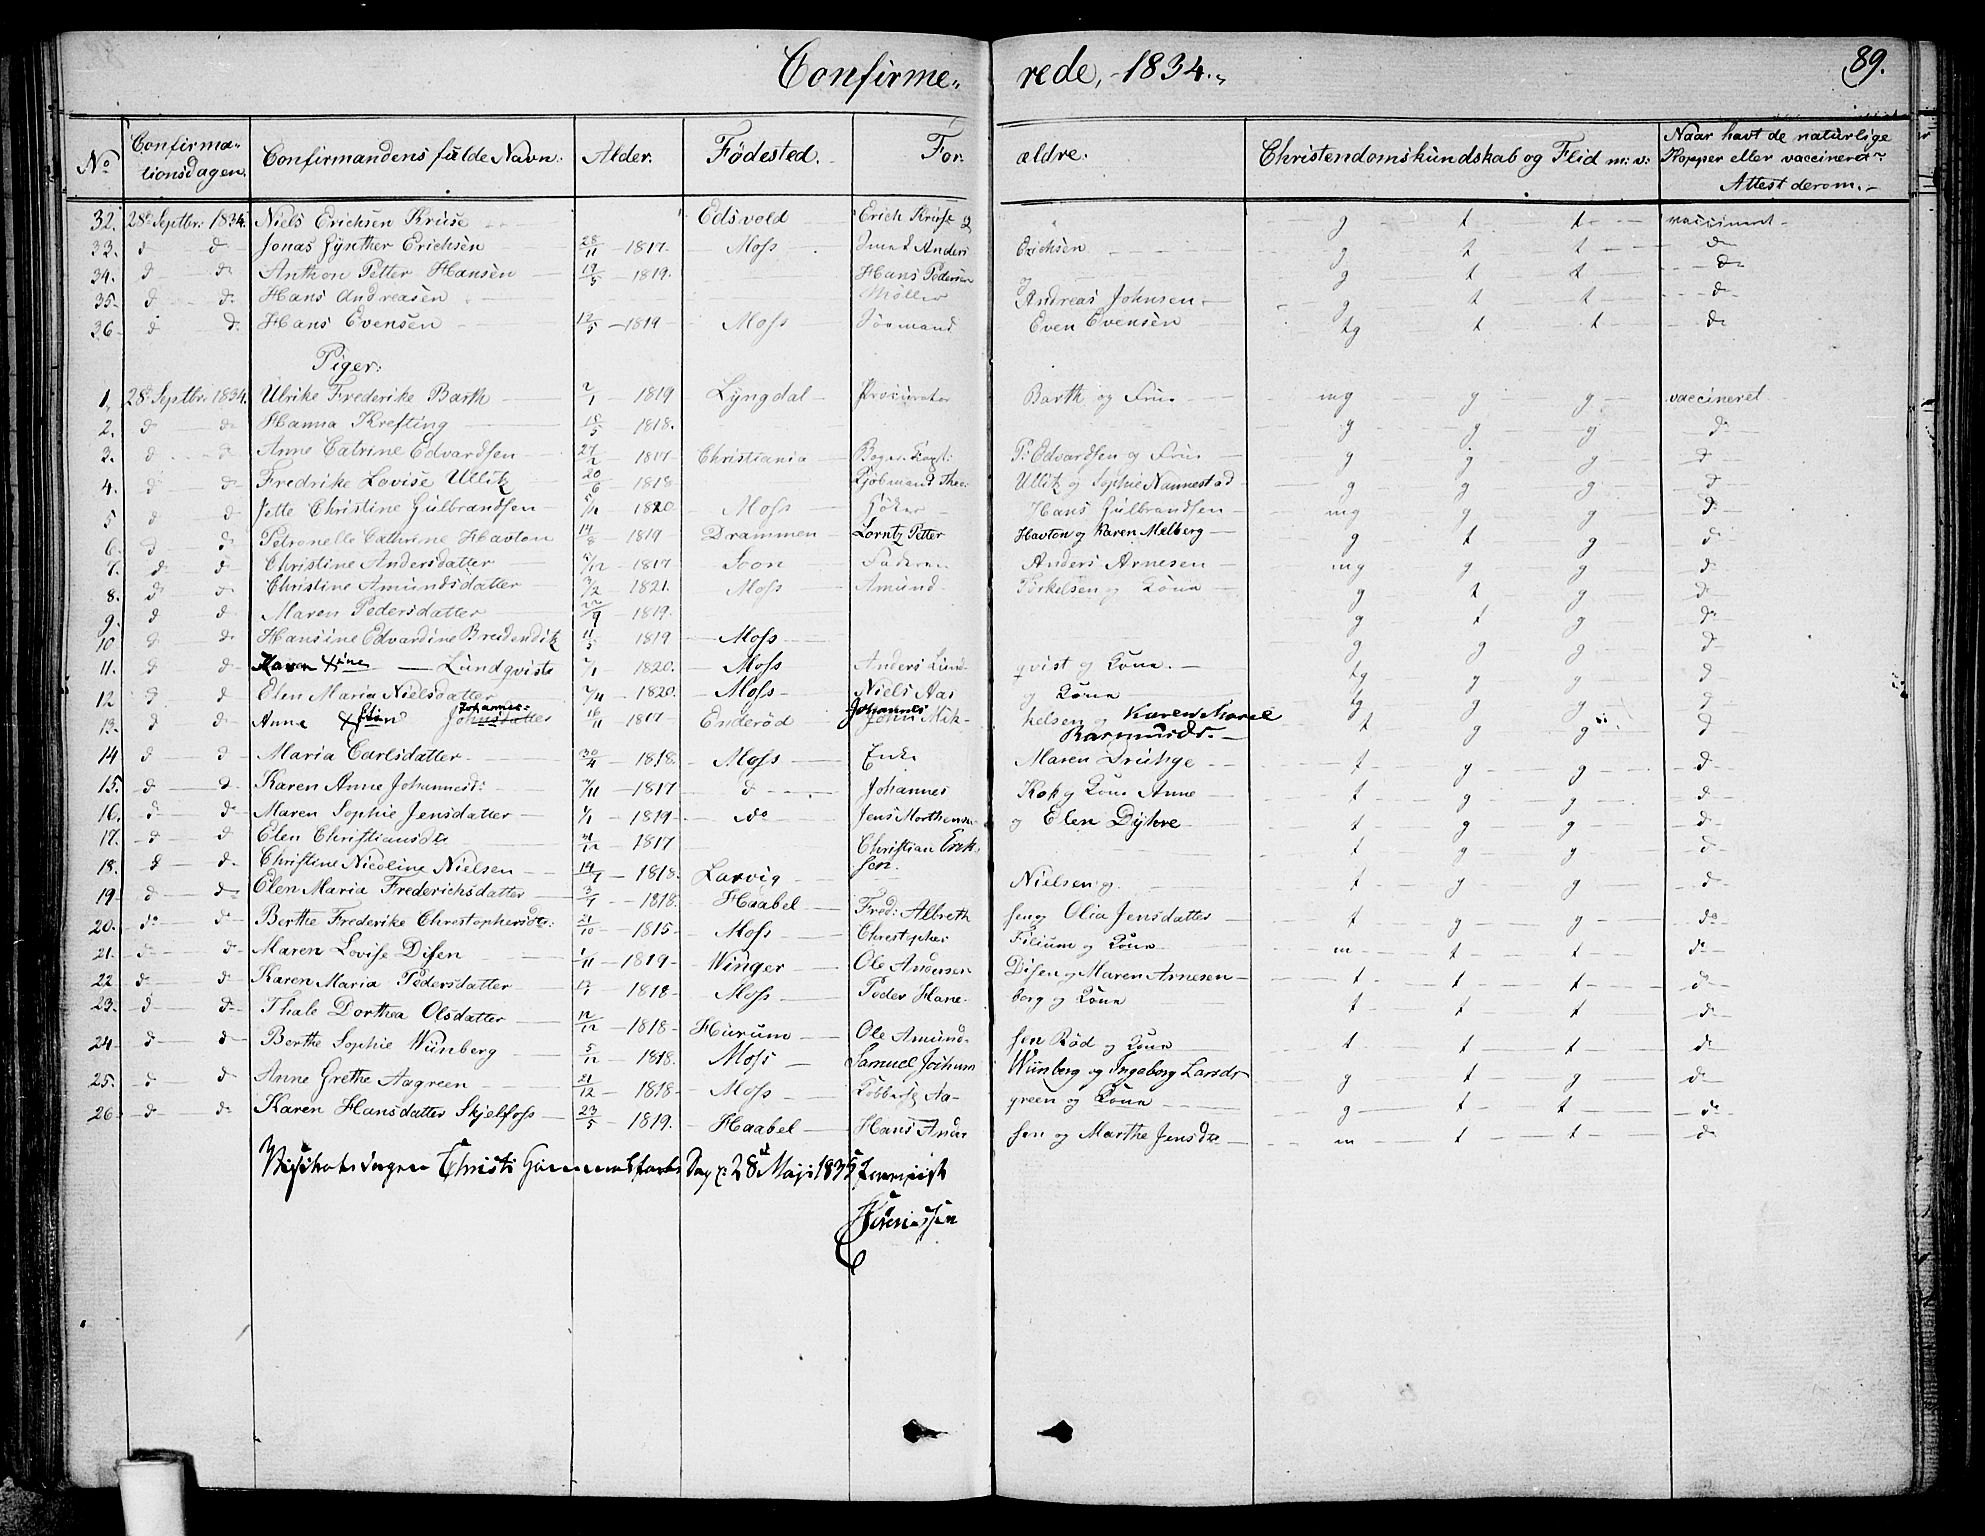 Confirme- rede, 1834. 89.
No Confirma- tionsdagen. Confirmandens fulde Navn: Alder. Fødested. For- ældre. Christendomskundskab og Flid m: v: Naar havt de naturlige Kopper eller vaccineret Attest derom.
32. 28 Septbr: 1834. Niels Erichsen Kruse Edsvold Erich Kruse g t t vaccineret
33. d d Jonas Gynther Erichsen 28/11 1817 Moss Smed Anders Erichsen g t t d
34. d d Anthon Petter Hansen 19/5 1819. Hans Pedersen g t t d
35. d d Hans Andreasen Møller Andreas Johnsen g t t d
36 d d Hans Evensen 12/5 1819 Moss Sømand Even Evensen tg t t d
Piger:
1. 28 Septbr: 1834. Ulrike Frederike Barth 2/1 1819 Lyngdal Procurator Barth og Frue mg g g vaccineret
2. d d Hanna Krefting 18/5 1818. g g g d
3. d d Anne Catrine Edvardsen 27/2 1817 Christiania P: Edvardsen og Frue g g g d
4. d d Fredrike Lovise Ullitz 20/6 1818 Kjøbmand Theo: Ullitz og Sophie Nannestad g g g d
5 d d Jette Christine Gulbrandsen 1820 Moss Hans Gulbrandsen mg g g d
6. d d Petronelle Cathrine Havton 14/8 1819 Drammen Lorntz Petter Havton og Karen Melberg g t g d
7. d d Christine Andersdatter 1817 Soon Anders Arnesen mg g g d
8. d d Christine Amundsdatter 3/2 1821. Moss Amund Torkelsen og Kone g t g d
9. d d Maren Pedersdatter 22/9 1819. g t g d
10 d d Hansine Edvardine Bredendik 11/5 1819 Moss g g g d
11. d d Karen Xine Lundqvist 1820. Moss Anders Lund- qvist og Kone. tg g g d
12 d d Elen Maria Nielsdatter 7/4 1820. Moss Niels Aas og Kone tg g g d
13. d d Anne Johannes- Johnsdatter 16/11 1817 Enderød Johannes John Mik- kelsen og Karen Marie Rasmusdr. t g g d
14 d d Maria Carlsdatter 30/4 1818. Moss Enke Maren t g g d
15. d d Karen Anne Johannesd: 1817 d Johannes Kok og Kone Anne t g g d
16. d d Maren Sophie Jensdatter 1819 do Jens Morthens og Elen Dyhre t g g d
17. d d Elen Christiansdtr 1817 Christian Erik- sen. t g g d
18. d d Christine Nicoline Nielsen 14/7 1818 Larvig Nielsen og t g g d
19 d d Elen Maria Frederichsdatter 3/1 1818. Haabel Fred: Albreth sen og Olia Jensdatter t g g do
20. do d Berthe Frederike Christophersdtr: 21/10 1815 Moss Christopher Filium og Kone m t t d
21. d d Maren Lovise Disen 1/11 1819 Winger Ole Andersen Disen og Maren Arnesen t t t d
22 d d Karen Maria Pedersdatter 1818 Moss Peder Hane- borg og Kone t t t d
23. d d Thale Dorthea Olsdatter 12/12 1818 Hurum Ole Amund- sen Rød og Kone t t t d
24 d d Berthe Sophie Wünberg 5/12 1818. Moss Samuel Jochum Wünberg og Ingeborg Larsdr g t g d
25. d d Anne Grethe Aagreen 21/12 1818 Moss Aa- green og Kone g t t d
26 d d Karen Hansdatter Skjelfoss 23/5 1819. Haabel Hans Ander sen og Marthe Jensdtr m t t d
Christi Himmelfarts Dag 28 Maji 1835